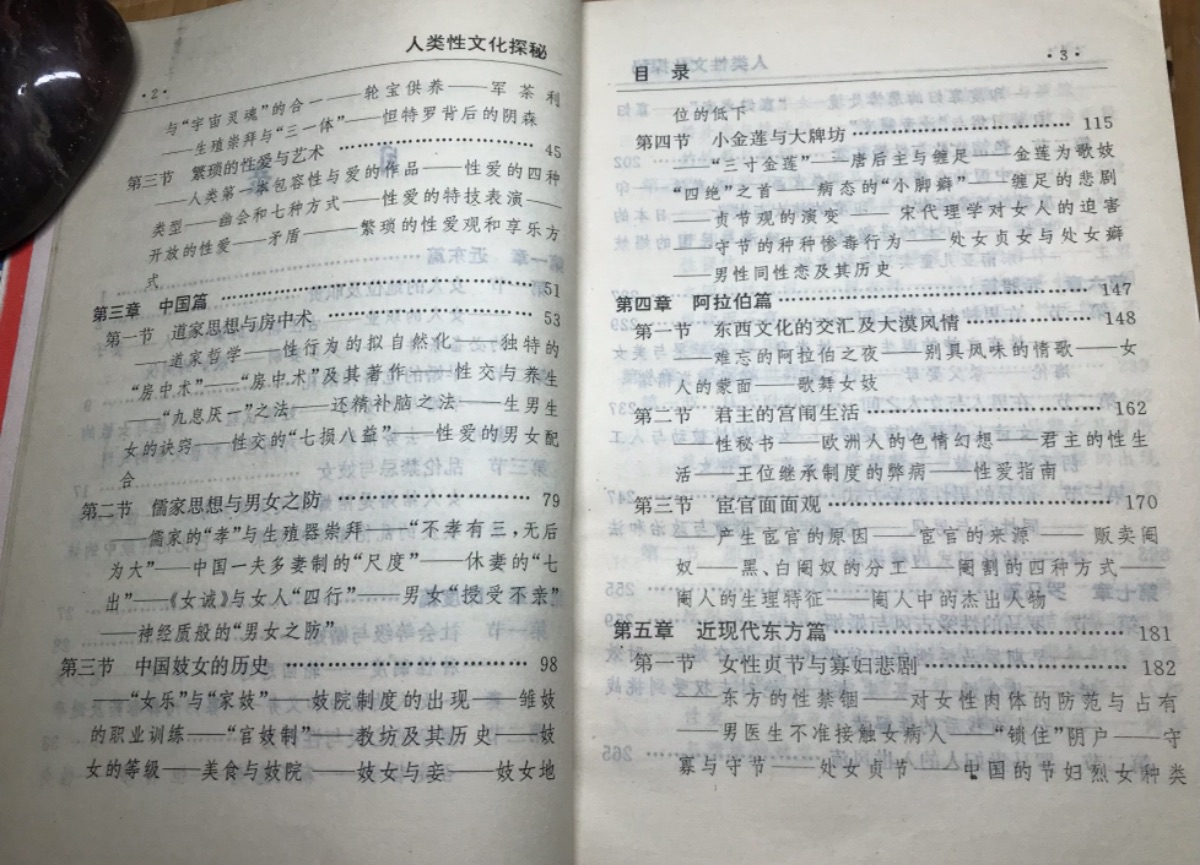 ·2· 人类性文化探秘
与“宇宙灵魂”的合一——轮宝供养——军荼利
——生殖崇拜与“三一体”——怛特罗背后的阴森
第三节 繁琐的性爱与艺术 45
——人类第一本包容性与爱的作品——性爱的四种
类型——幽会和七种方式——性爱的特技表演——
开放的性爱——矛盾——繁琐的性爱观和享乐方
式
第三章 中国篇 51
第一节 道家思想与房中术 53
——道家哲学——性行为的拟自然化——独特的
“房中术”——“房中术”及其著作——性交与养生
——“九息厌一”之法——还精补脑之法——生男生
女的诀窍——性交的“七损八益”——性爱的男女配
合
第二节 儒家思想与男女之防 79
——儒家的“孝”与生殖器崇拜——“不孝有三,无后
为大”——中国一夫多妻制的“尺度”——休妻的“七
出”——《女诫》与女人“四行”——男女“授受不亲”
——神经质般的“男女之防”
第三节 中国妓女的历史 98
——“女乐”与“家妓”——妓院制度的出现——雏妓
的职业训练——“官妓制”——教坊及其历史——妓
女的等级——美食与妓院——妓女与妾——妓女地
目 录 ·3·
位的低下
第四节 小金莲与大牌坊 115
——“三寸金莲”——唐后主与缠足——金莲为歌妓
“四绝”之首——病态的“小脚癖”——缠足的悲剧
——贞节观的演变——宋代理学对女人的迫害
——守节的种种惨毒行为——处女贞女与处女癖
——男性同性恋及其历史
第四章 阿拉伯篇 147
第一节 东西文化的交汇及大漠风情 148
——难忘的阿拉伯之夜——别具风味的情歌——女
人的蒙面——歌舞女妓
第二节 君主的宫闱生活 162
——性秘书——欧洲人的色情幻想——君主的性生
活——王位继承制度的弊病——性爱指南
第三节 宦官面面观 170
——产生宦官的原因——宦官的来源——贩卖阉
奴——黑、白阉奴的分工——阉割的四种方式——
阉人的生理特征——阉人中的杰出人物
第五章 近现代东方篇 181
第一节 女性贞节与寡妇悲剧 182
——东方的性禁锢——对女性肉体的防范与占有
——男医生不准接触女病人——“锁住”阴户——守
寡与守节——处女贞节——中国的节妇烈女种类